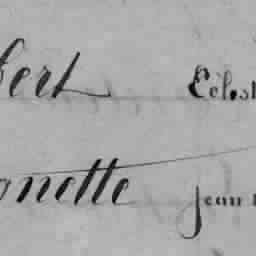 bert Célest
gnette jean